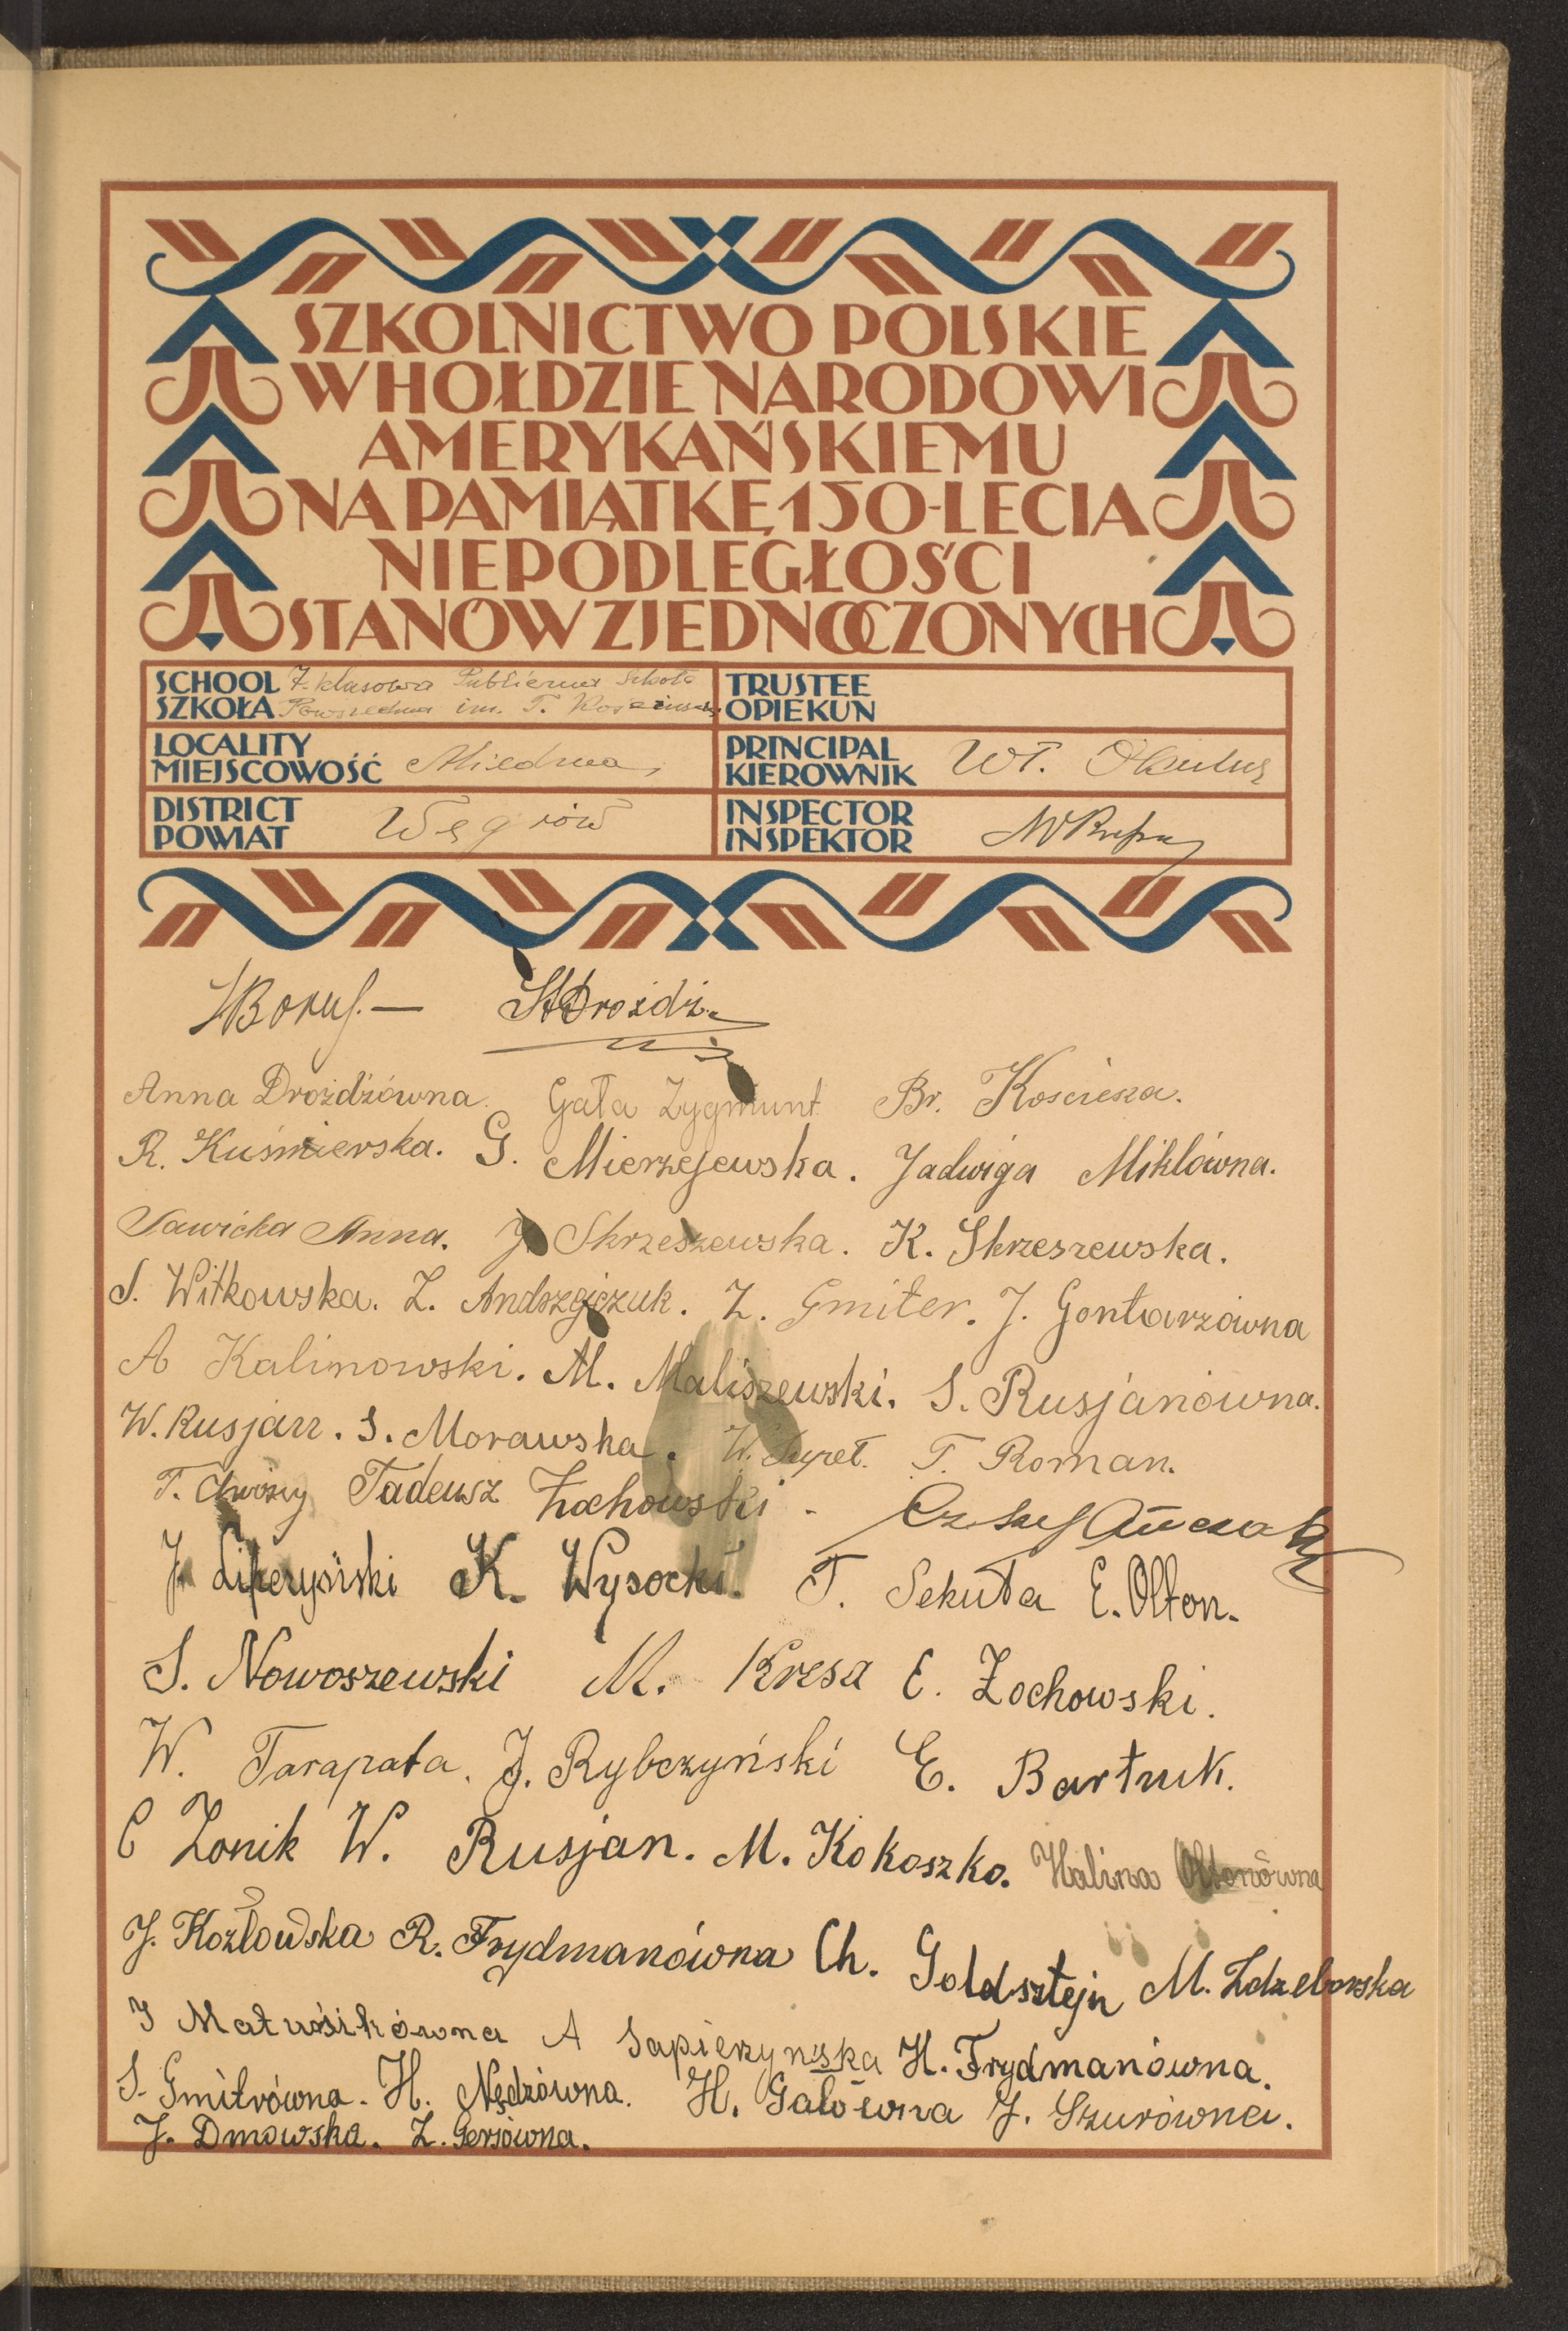 SZKOLNICTWO POLSKIE
W HOŁDZIE NARODOWI
AMERYKAŃSKIEMU
NA PAMIĄTKĘ 150-LECIA
NIEPODLEGŁOŚCI
STANÓW ZJEDNOCZONYCH
SCHOOL SZKOŁA 7-klasowa Publiczna Szkoła
Powszechna im. T. Kościuszki
TRUSTEE
OPIEKUN
LOCALITY
MIEJSCOWOŚĆ Miedzna
PRINCIPAL
KIEROWNIK Wł.
DISTRICT
POWIAT Węgrów
INSPECTOR
INSPEKTOR
Boruś.— St Drożdż.
Anna Drożdżówna. Gała Zygmunt Br. Kościesza.
R. Kuśmierska. G. Mierzejewska. Jadwiga Miklówna.
Sawicka Anna. J Skrzeszewska. K. Skrzeszewska.
S. Witkowska. Z. Andrzejczuk. Z. Gmiter. J. Gontarzówna
A Kalinowski. M. Maliszewski. S. Rusjanówna.
W. Rusjan. S. Morawska. W. T. Roman.
T. Tadeusz Żochowski
J. K. Wysocki. T. Sekuła E. Olton.
S. Nowoszewski M. Kresa E. Żochowski.
W. Tarapata. J. Rybczyński E. Bartnik.
C Zonik W. Rusjan. M. Kokoszko. Halina Oltonówna
J. Kozłowska R. Frydmanówna Ch. Goldsztejn M. Zdzeborska
J Matusikówna A Sapierzynska H. Frydmanówna.
S. Gmitrówna. H. Nędzówna. H. Gałówna J. Szurówna.
J. Dmowska. Z. Gersówna.